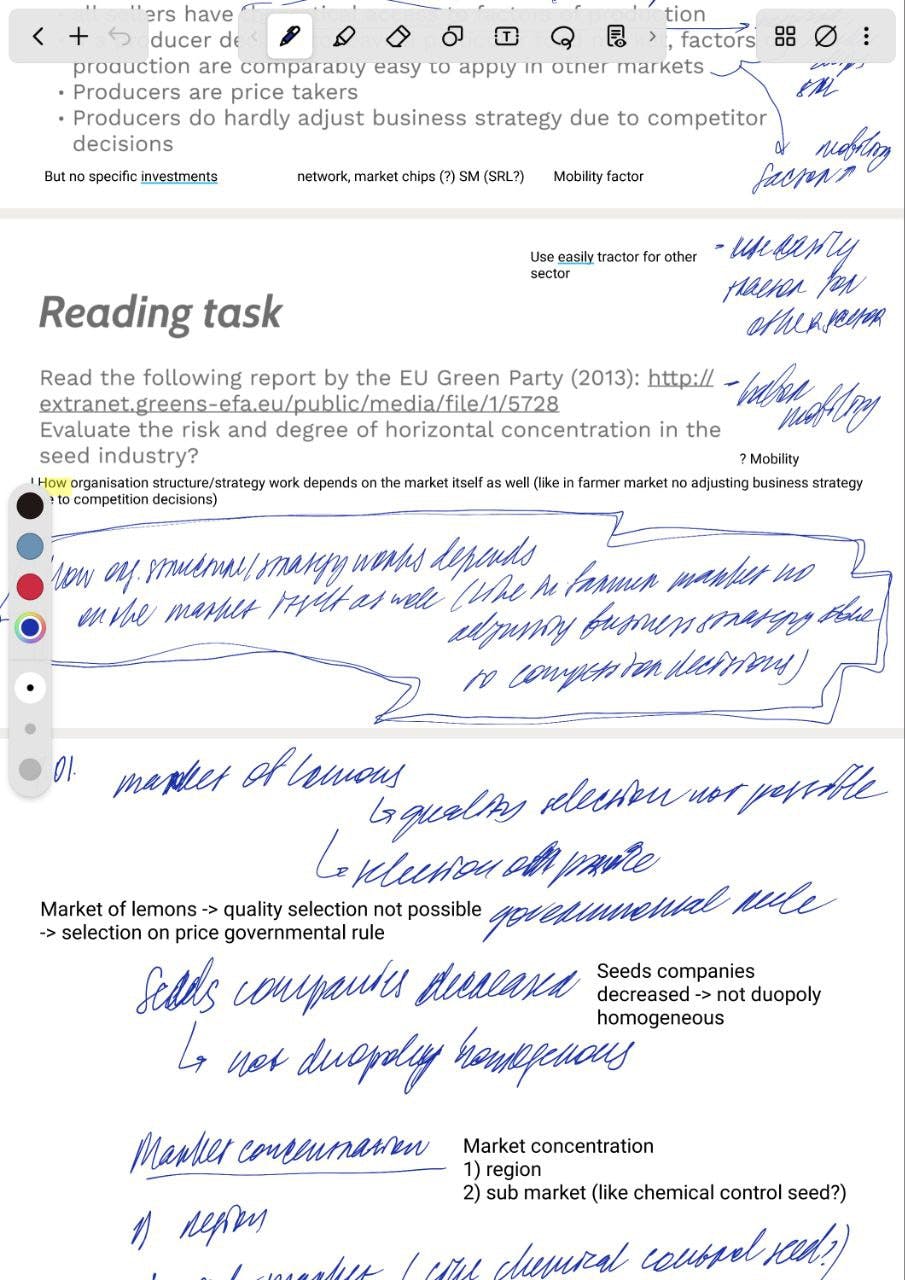 all sellers have
production are comparably easy to apply in other markets
• Producers are price takers
• Producers do hardly adjust business strategy due to competitor
decisions
mobility
factor ↑
But no specific investments network, market chips (?) SM (SRL?) Mobility factor
Use easily tractor for other
sector
- use easily
tractor for
other sector
Reading task
Read the following report by the EU Green Party (2013): http://
extranet.greens-efa.eu/public/media/file/1/5728
Evaluate the risk and degree of horizontal concentration in the
seed industry?
- labor
mobility
? Mobility
! How organisation structure/strategy work depends on the market itself as well (like in farmer market no adjusting business strategy
to competition decisions)
How org. structure/strategy works depends
on the market itself as well (like in farmer market no
adjusting business strategy due
to competition decisions)
01.
market of lemons
↳ quality selection not possible
↳ selection on price
governmental rule
Market of lemons -> quality selection not possible
-> selection on price governmental rule
Seeds companies decreased
↳ not duopoly homogenous
Seeds companies
decreased -> not duopoly
homogeneous
Market concentration
1) region
Market concentration
1) region
2) sub market (like chemical control seed?)
market (like chemical control seed?)